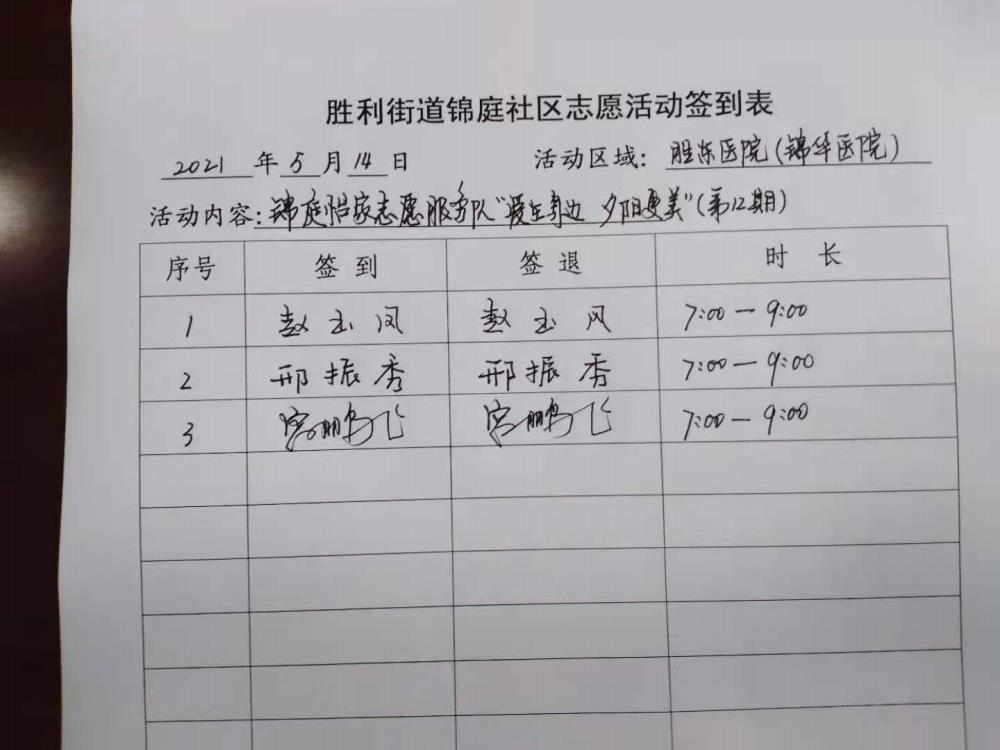 胜利街道锦庭社区志愿活动签到表
2021 年 5 月 14 日 活动区域: 胜东医院(锦华医院)
活动内容: 锦庭怡家志愿服务队“爱在身边 夕阳更美”(第12期)
序号 签到 签退 时长
1 赵玉凤 赵玉风 7:00—9:00
2 邢振秀 邢振秀 7:00—9:00
3 宫鹏飞 宫鹏飞 7:00—9:00